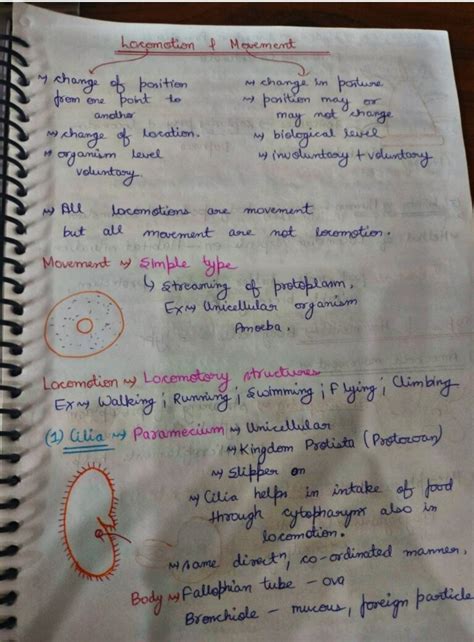 Locomotion & Movement
change of position
from one point to
another
change of location.
organism level
voluntary.
change in posture
position may or
may not change
biological level
involuntary + voluntary
All locomotions are movement
but all movement are not locomotion.
Movement Simple type
Streaming of protoplasm.
Ex Unicellular organism
Amoeba.
Locomotion Locomotory structures
Ex Walking ; Running ; Swimming ; Flying ; Climbing
(1) Cilia Paramecium Unicellular
Kingdom Protista (Protozoan)
Slipper
Cilia helps in intake of food
through cytopharynx also in
locomotion.
same directn, co-ordinated manner.
Body Fallophian tube - ova
Bronchiole - mucous, foreign particle